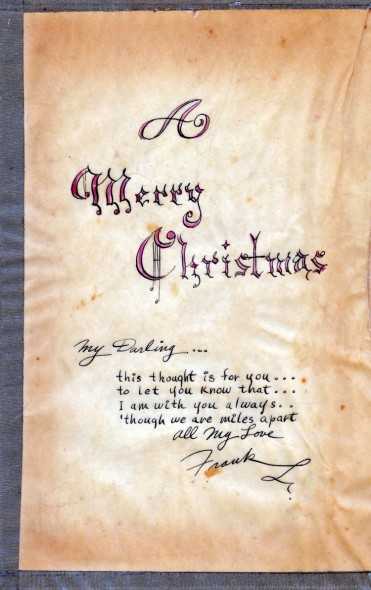 A
Merry
Christmas
My Darling...
this thought is for you...
to let you know that...
I am with you always..
'though we are miles apart
All My Love
Frank